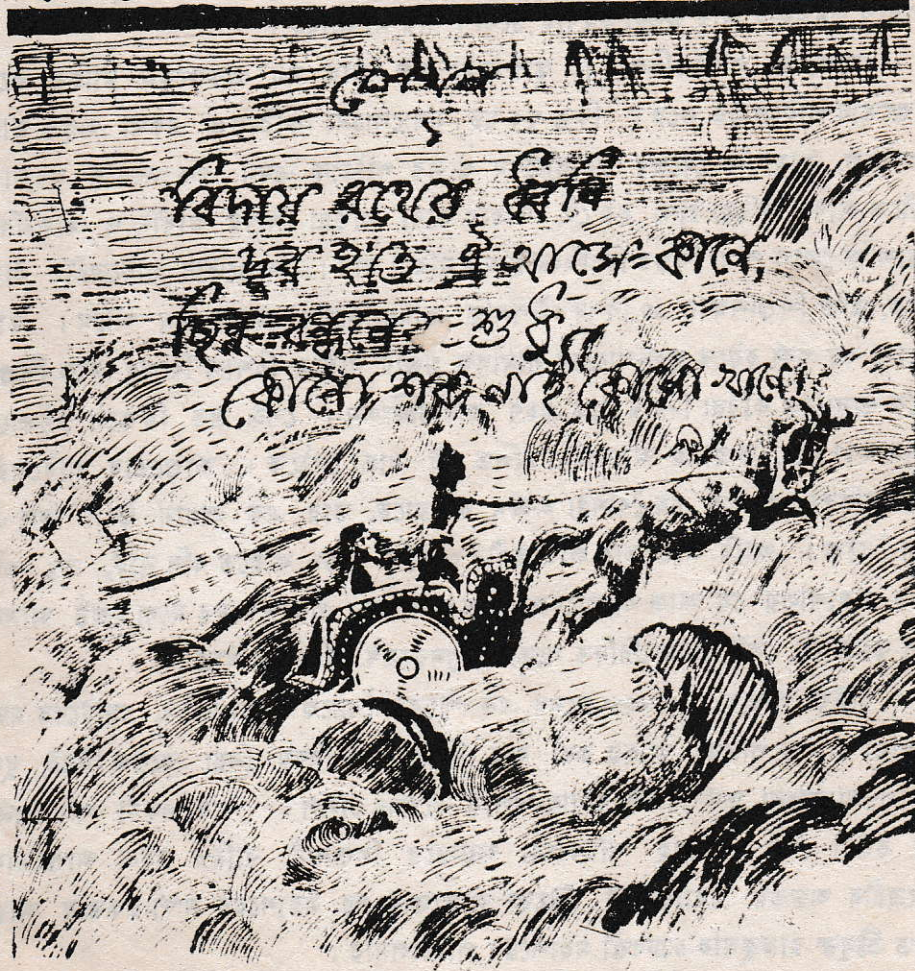 লেখন
১
বিদায় রথের ধ্বনি
দূর হতে ঐ আসে কানে,
ছিন্ন বন্ধনের শুধু
কোনো শব্দ নাই কোনো খানে।